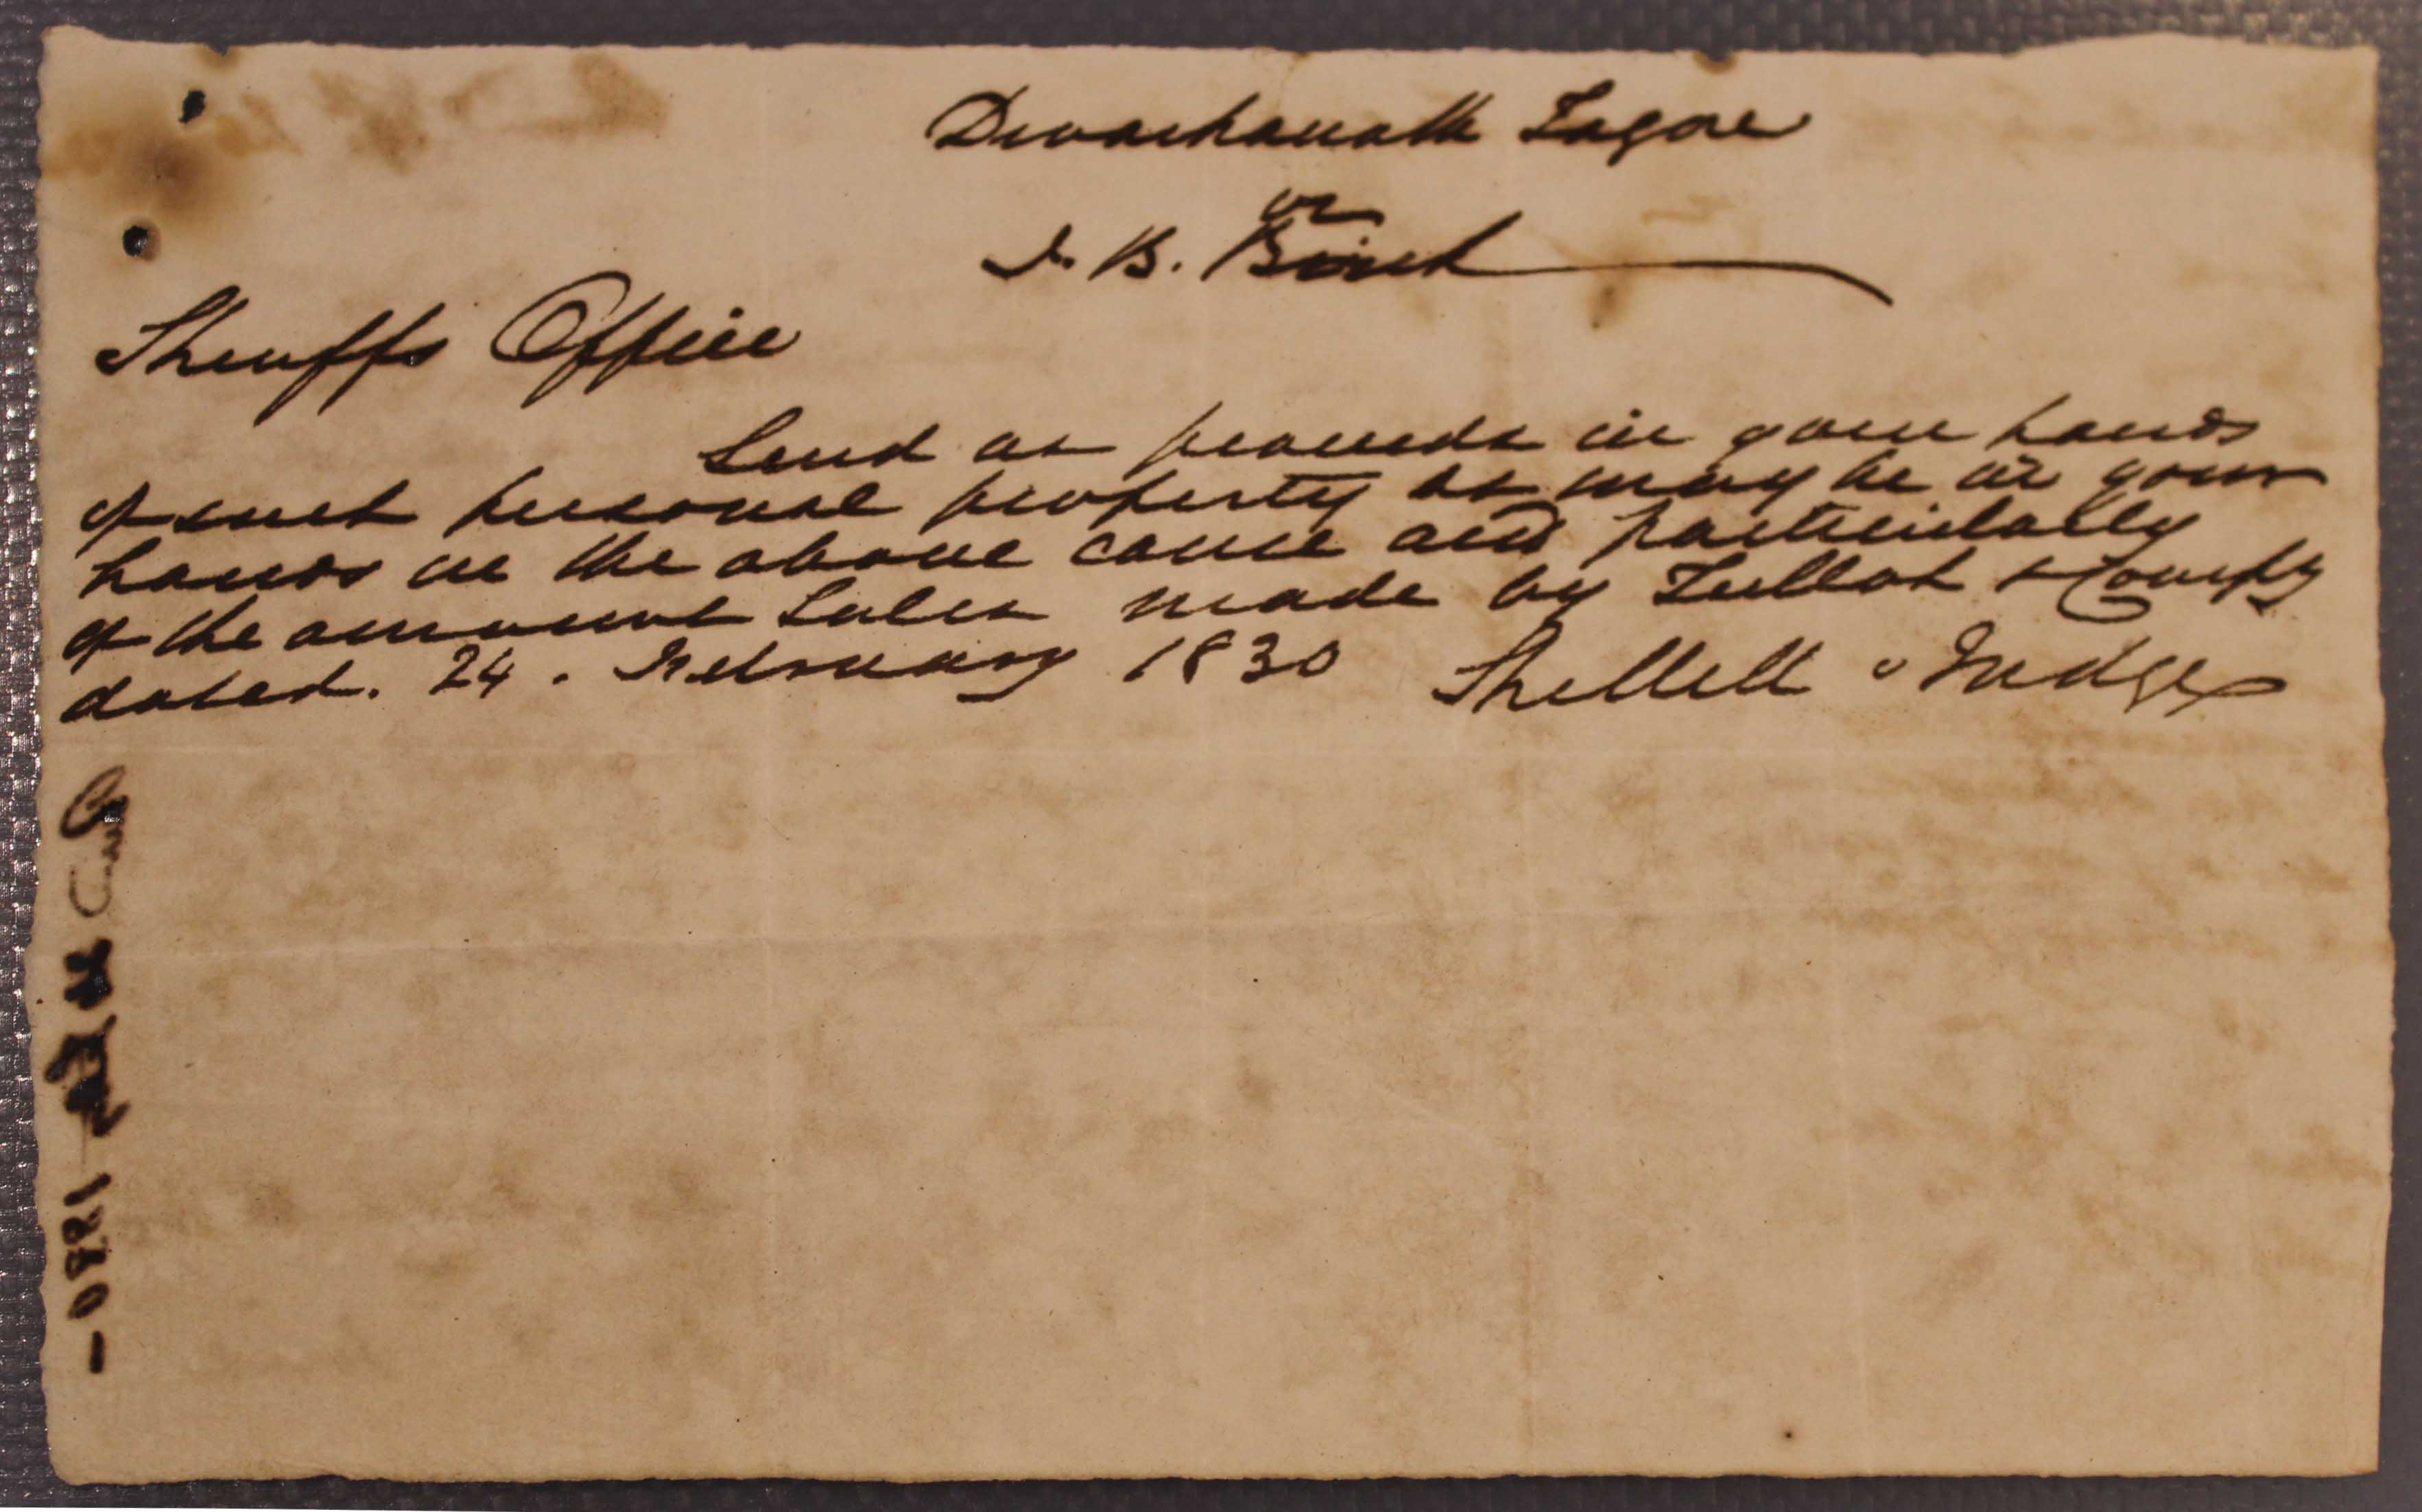 Dwarkanath Tagore
vs
J. B. Birch
Sheriffs Office
Send us proceeds in your hands
of such personal property as may be in your
hands in the above cause and particularly
of the amount Sales made by Tulloh & Compy
dated. 24. February 1830
& Judge